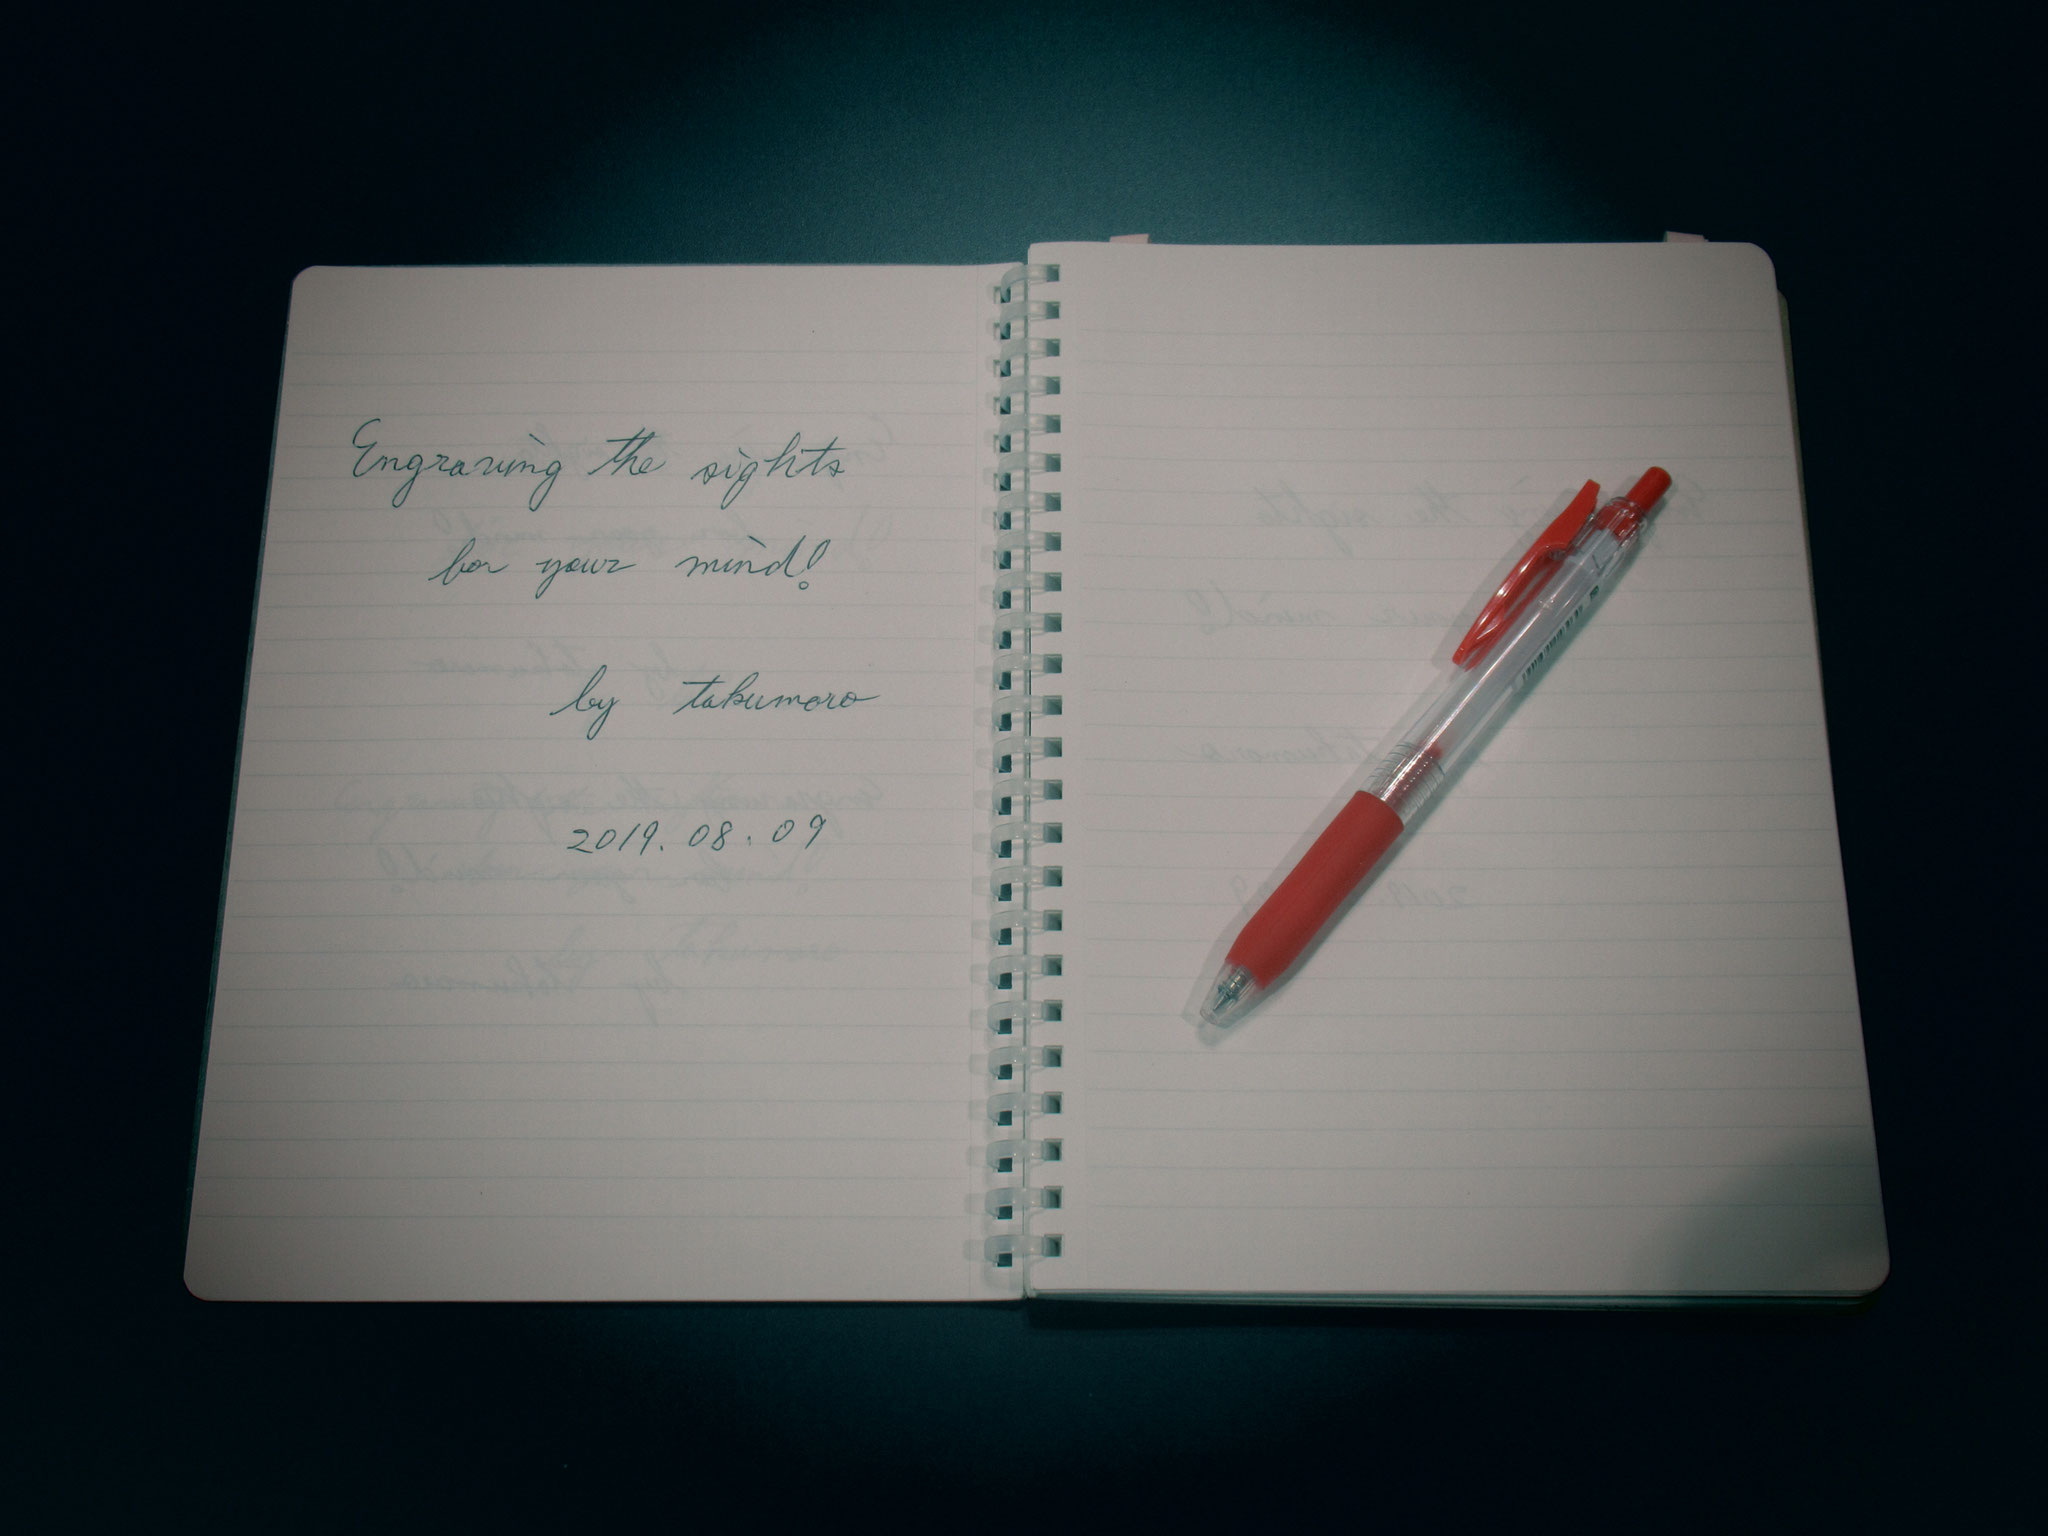 Engraving the sights
for your mind!
by takumoro
2019. 08. 09